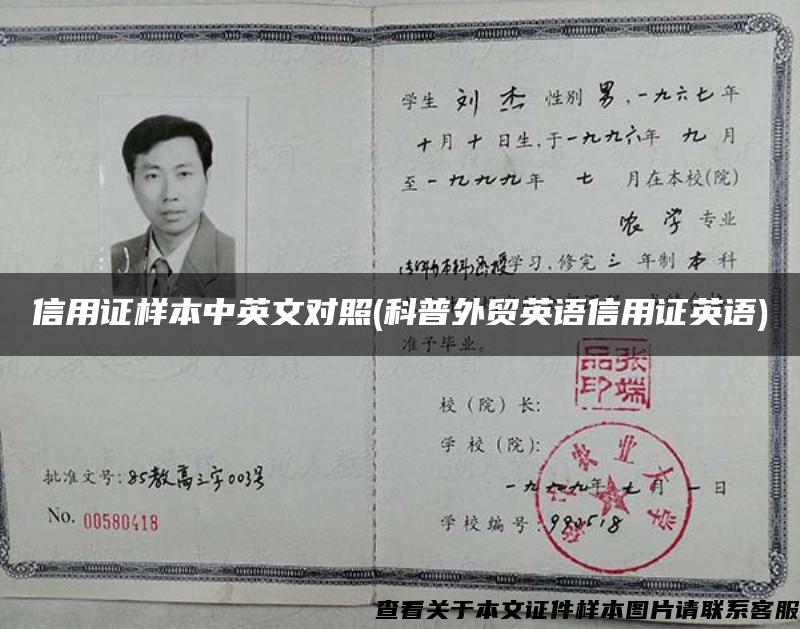 学生 刘杰 性别 男，一九六七年
十月十日生，于一九九六年 九 月
至一九九九年 七 月在本校(院)
农学 专业
学习，修完 三 年制 本 科
信用证样本中英文对照(科普外贸英语信用证英语)
准予毕业。
张端品印
校（院）长：
学 校（院）：
农业大学
一九九九年七月一日
学校编号：990518
批准文号：85教高三字003号
No. 00580418
查看关于本文证件样本图片请联系客服